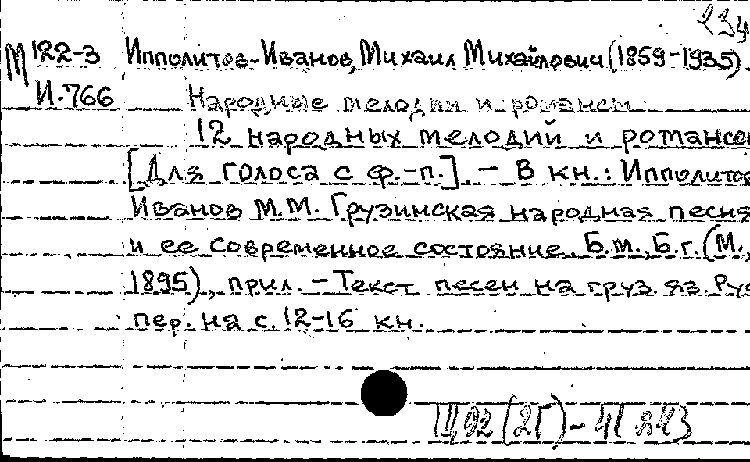 234
М 122-3 Ипполитов-Иванов, Михаил Михайлович (1859-1935).
И-766 Народные мелодии и романсы
12 народных мелодий и романсо
[Для голоса с ф.-п.]. - В кн.: Ипполитов
Иванов М.М. Грузинская народная песня
и ее современное состояние. Б.м., Б.г. (М.,
1895), прил. - Текст песен на груз. яз. Рус
пер. на с. 12-16 кн.